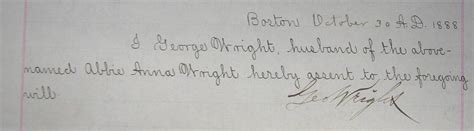 Boston October 30 A.D. 1888.
I George Wright, husband of the above-
named Abbie Anna Wright hereby assent to the foregoing
will.
Geo Wright